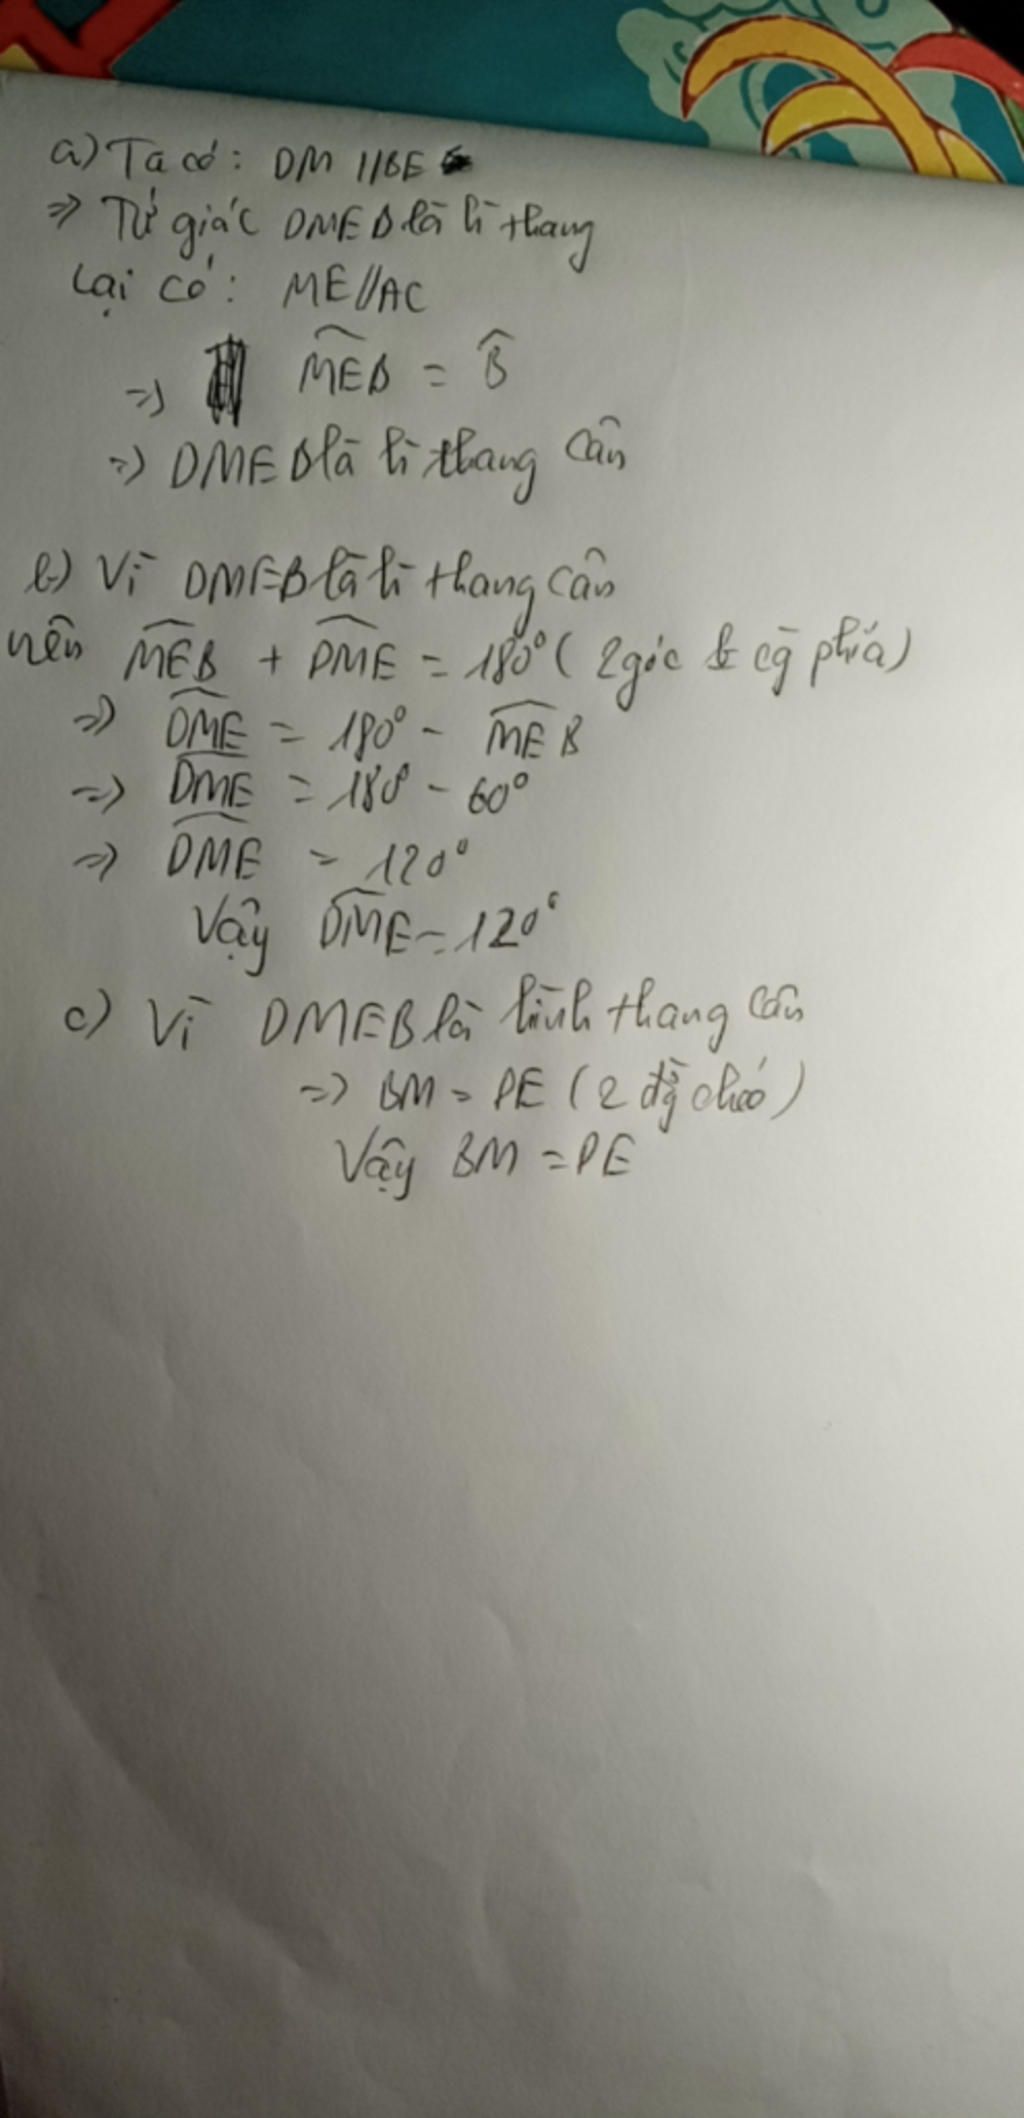 a) Ta có: DM // BE
=> Tứ giác DMEB là hì thang
Lại có: ME//AC
=> MEB = B
=> DMEB là hì thang cân
b) Vì DMEB là hì thang cân
nên MEB + DME = 180° ( 2 góc cg phía)
=> DME = 180° - MEB
=> DME = 180° - 60°
=> DME = 120°
Vậy DME = 120°
c) Vì DMEB là hình thang cân
=> BM = DE ( 2 đg chéo )
Vậy BM = DE